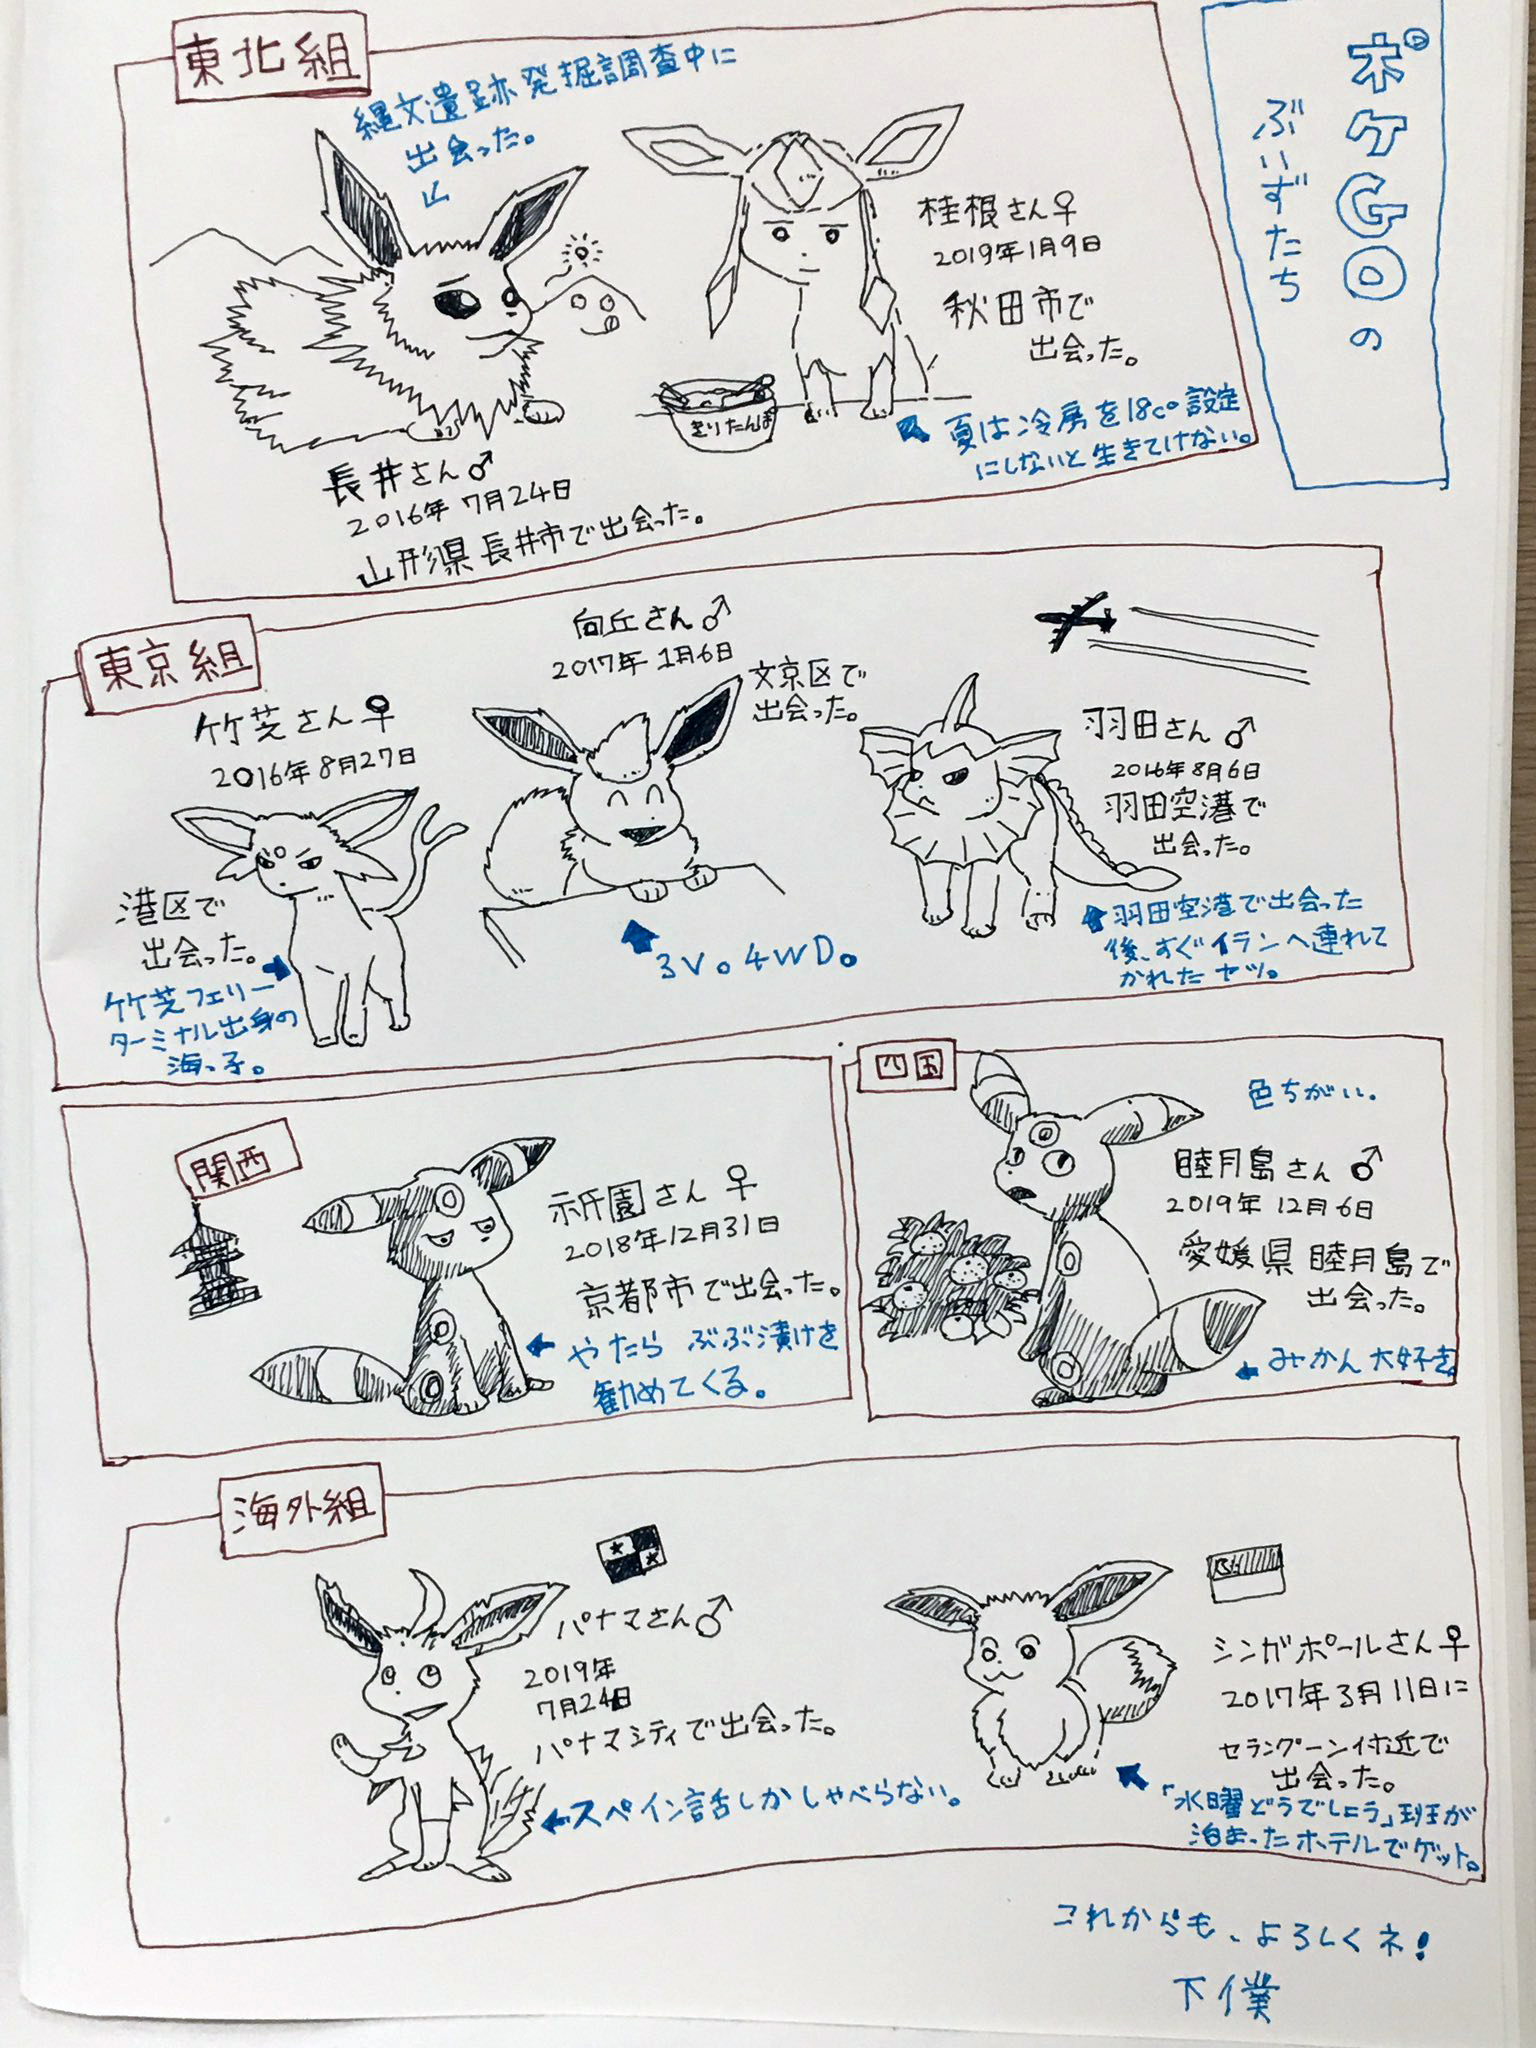 ポケGOの
ぶいずたち
東北組
縄文遺跡発掘調査中に
出会った。
長井さん♂
2016年 7月24日
山形県長井市で出会った。
桂根さん♀
2019年1月9日
秋田市で
出会った。
きりたんぽ
夏は冷房を18c°設定
にしないと生きてけない。
東京組
竹芝さん♀
2016年8月27日
港区で
出会った。
竹芝フェリー
ターミナル出身の
海っ子。
向丘さん♂
2017年 1月6日
文京区で
出会った。
3V。4WD。
羽田さん♂
2016年8月6日
羽田空港で
出会った。
羽田空港で出会った
後、すぐイランへ連れて
かれたヤツ。
関西
祇園さん♀
2018年12月31日
京都市で出会った。
やたら ぶぶ漬けを
勧めてくる。
四国
色ちがい。
睦月島さん♂
2019年 12月6日
愛媛県 睦月島で
出会った。
みかん大好き。
海外組
パナマさん♂
2019年
7月24日
パナマシティで出会った。
スペイン語しかしゃべらない。
シンガポールさん♀
2017年3月11日に
セラングーン付近で
出会った。
「水曜どうでしょう」班が
泊まったホテルでゲット。
これからも、よろしくネ!
下僕